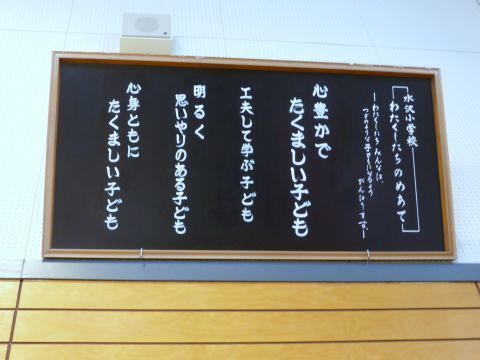 水沢小学校
わたくしたちのめあて
―わたくしたちみんなは、
つぎのような子どもになるよう
がんばります。―
心豊かで
たくましい子ども
工夫して学ぶ子ども
明るく
思いやりのある子ども
心身ともに
たくましい子ども